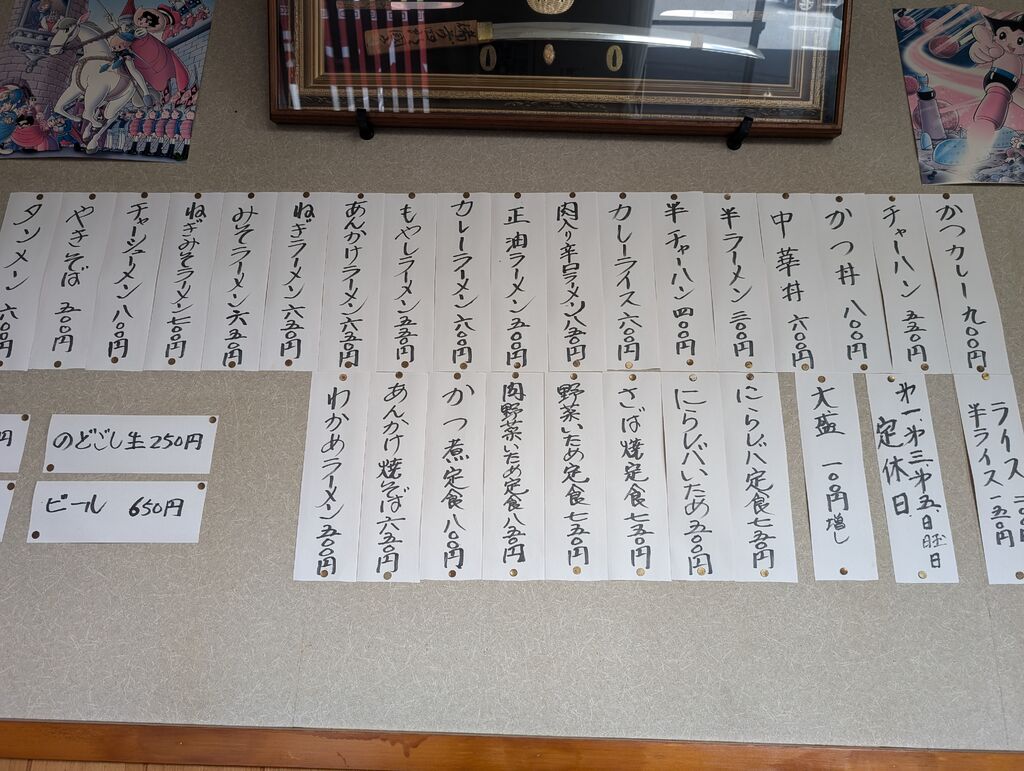 かつカレー 九〇〇円
チャーハン 五五〇円
かつ丼 八〇〇円
中華丼 六〇〇円
半ラーメン 三〇〇円
半チャーハン 四〇〇円
カレーライス 六〇〇円
肉入り辛口ラーメン 八五〇円
正油ラーメン 五〇〇円
カレーラーメン 六〇〇円
もやしラーメン 五五〇円
あんかけラーメン 六五〇円
ねぎラーメン 六五〇円
みそラーメン 六五〇円
ねぎみそラーメン 七〇〇円
チャーシューメン 八〇〇円
やきそば 五〇〇円
タンメン 六〇〇円
ライス
半ライス 一五〇円
第一、第三、第五、日曜日
定休日
大盛 一〇〇円増し
にらレバ定食 七五〇円
にらレバいため 五〇〇円
さば焼定食 七五〇円
野菜いため定食 七五〇円
肉野菜いため定食 八五〇円
かつ煮定食 八〇〇円
あんかけ焼そば 六五〇円
わかめラーメン 五〇〇円
のどごし生 250円
ビール 650円
円